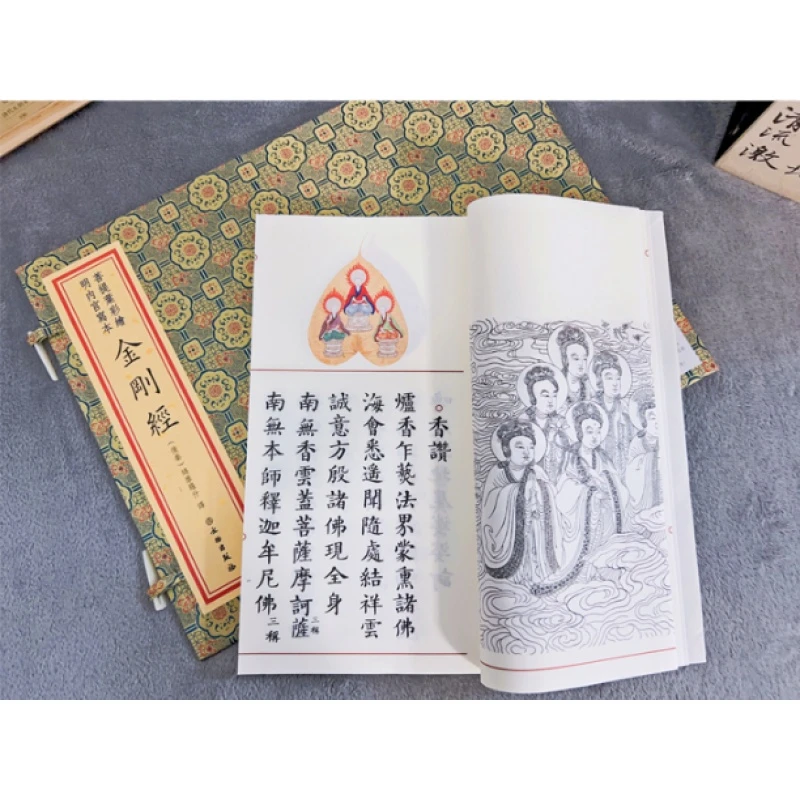 菩提葉彩繪
明內宮寫本
金剛經
(後秦)鳩摩羅什 譯
文物出版社
香讚
爐香乍爇法界蒙熏諸佛
海會悉遙聞隨處結祥雲
誠意方殷諸佛現全身
南無香雲蓋菩薩摩訶薩三稱
南無本師釋迦牟尼佛三稱
清流激